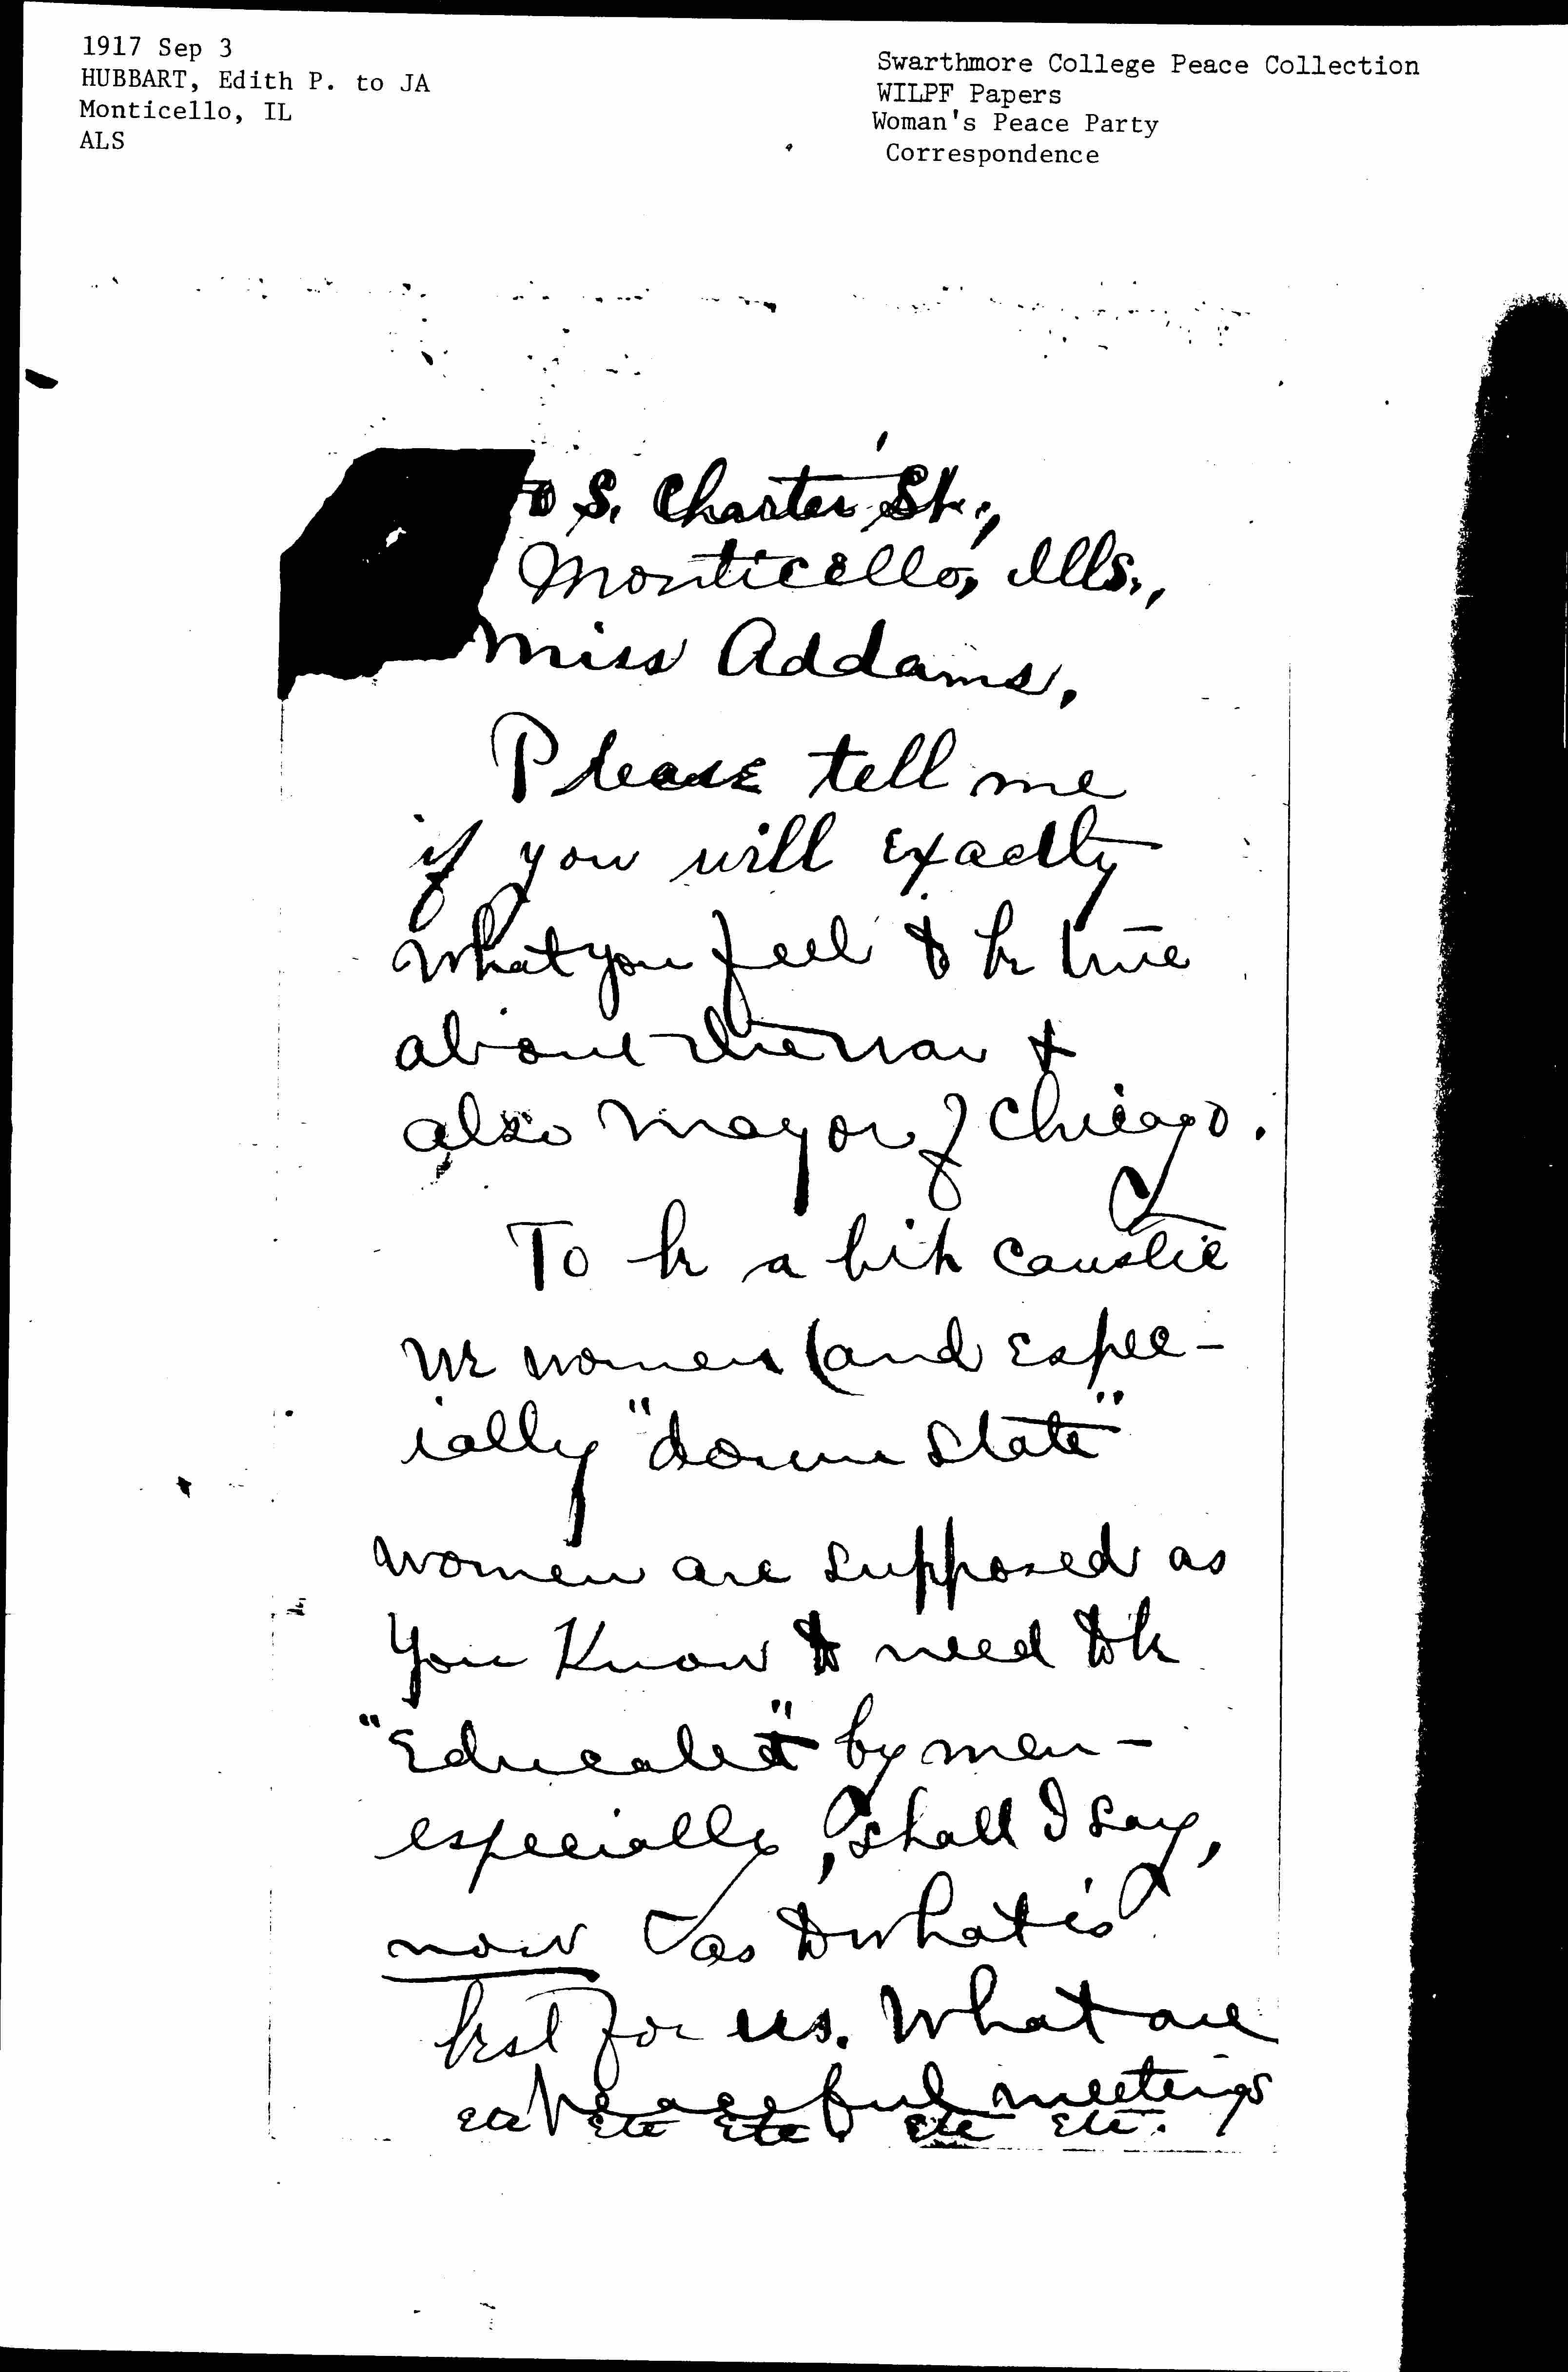 1917 Sep 3
HUBBART, Edith P. to JA
Monticello, IL
ALS
Swarthmore College Peace Collection
WILPF Papers
Woman's Peace Party
Correspondence
0 S. Charter St.,
Monticello, Ills.,
Miss Addams,
Please tell me
if you will exactly
what you feel to be true
about the war &
also mayor of Chicago.
To be a bit caustic
we women (and espec-
ially "down state"
women are supposed as
you know to need to be
"Educated" by men -
especially, shall I say,
now as to what is
best for us. What are
peaceful meetings
etc etc etc. etc etc.